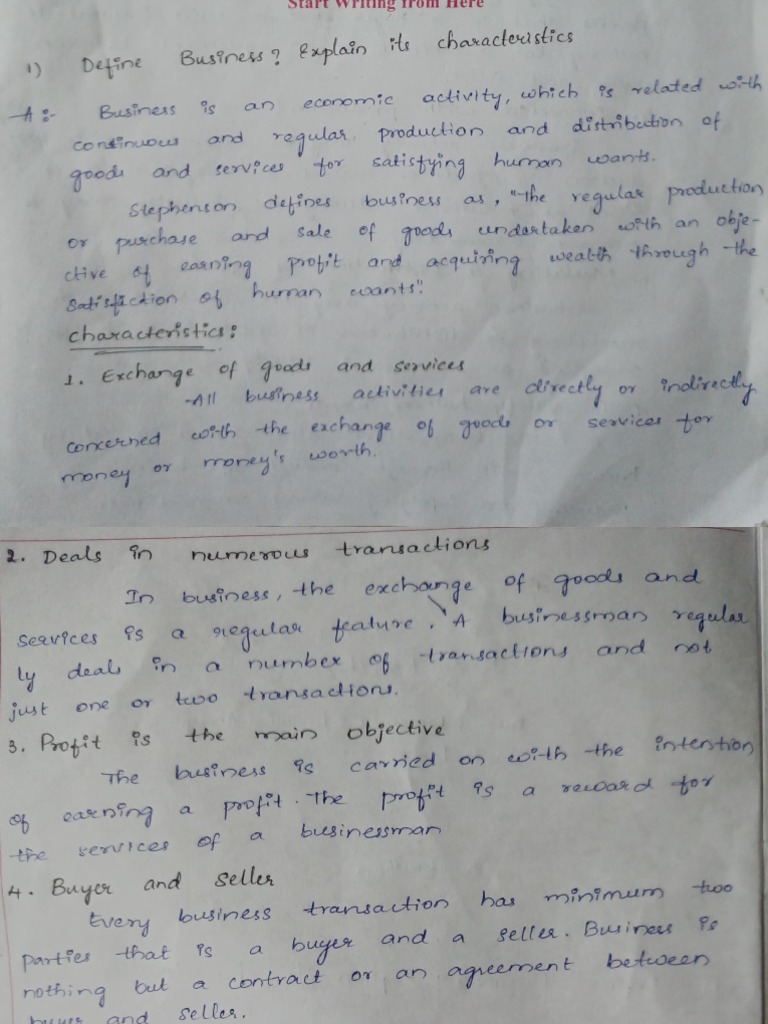 Start Writing from Here
1) Define Business? Explain its characteristics
A:- Business is an economic activity, which is related with
continuous and regular production and distribution of
goods and services for satisfying human wants.
Stephenson defines business as, "The regular production
or purchase and sale of goods undertaken with an obje-
ctive of earning profit and acquiring wealth through the
satisfaction of human wants".
Characteristics:
1. Exchange of goods and services
All business activities are directly or indirectly
concerned with the exchange of goods or services for
money or money's worth.
2. Deals in numerous transactions
In business, the exchange of goods and
services is a regular feature. A businessman regular
ly deals in a number of transactions and not
just one or two transactions.
3. Profit is the main objective
The business is carried on with the intention
of earning a profit. The profit is a reward for
the services of a businessman
4. Buyer and Seller
Every business transaction has minimum two
parties that is a buyer and a seller. Business is
nothing but a contract or an agreement between
buyer and seller.